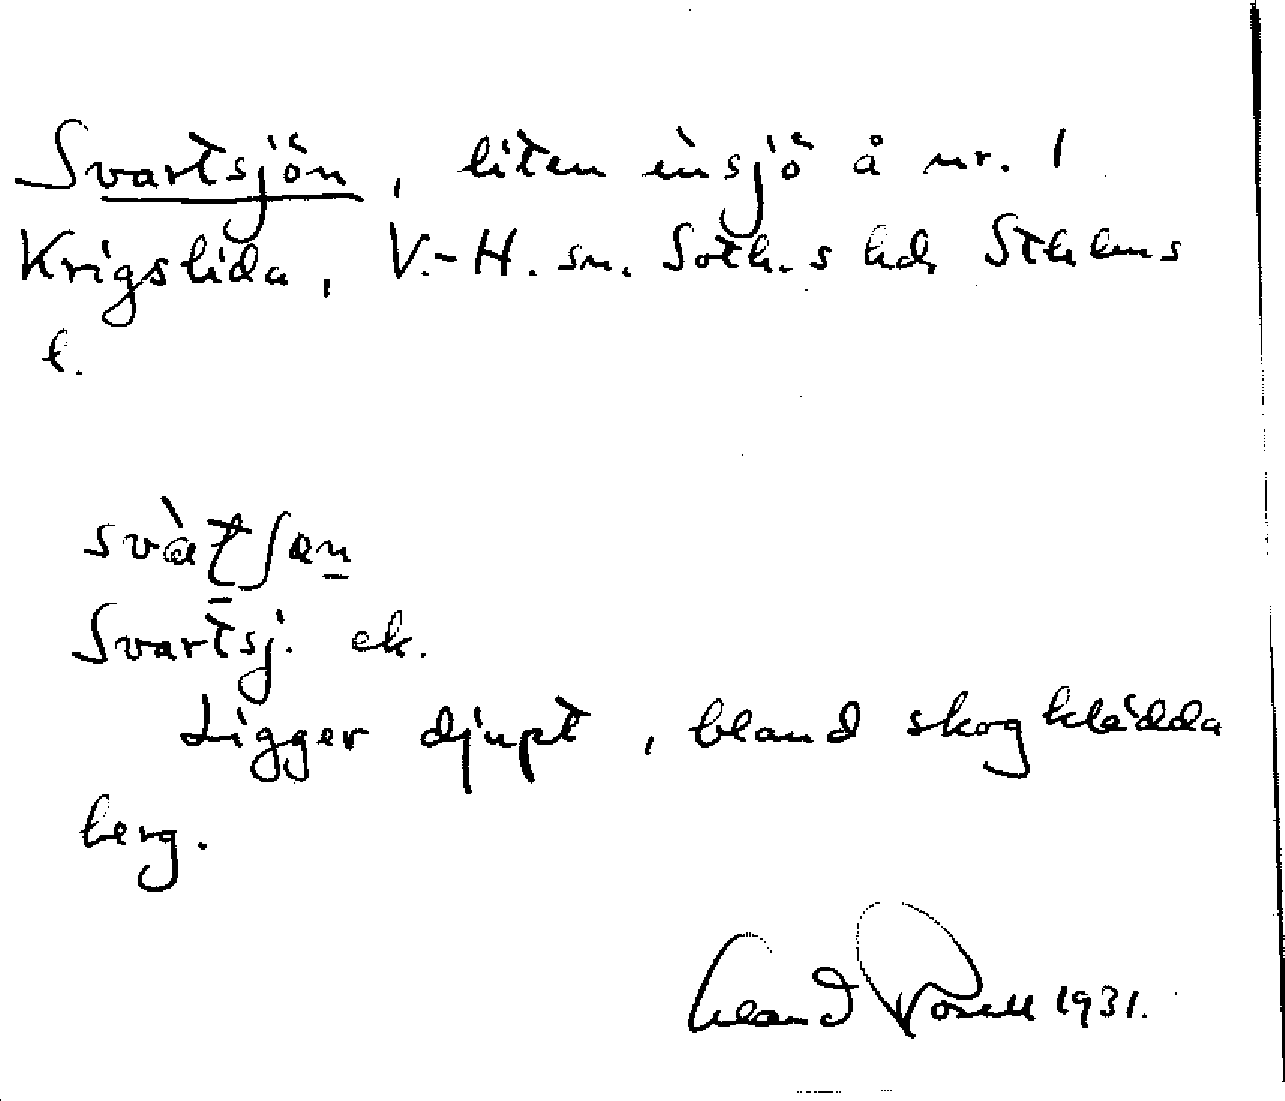 Svartsjön, liten insjö å nr. 1
Krigslida, V.-H. sn. Soth.s hd, Sthlms
l.
svàtʃan
Svartsj. ek.
Ligger djupt, bland skogklädda
berg.
Erland Rosell 1931.